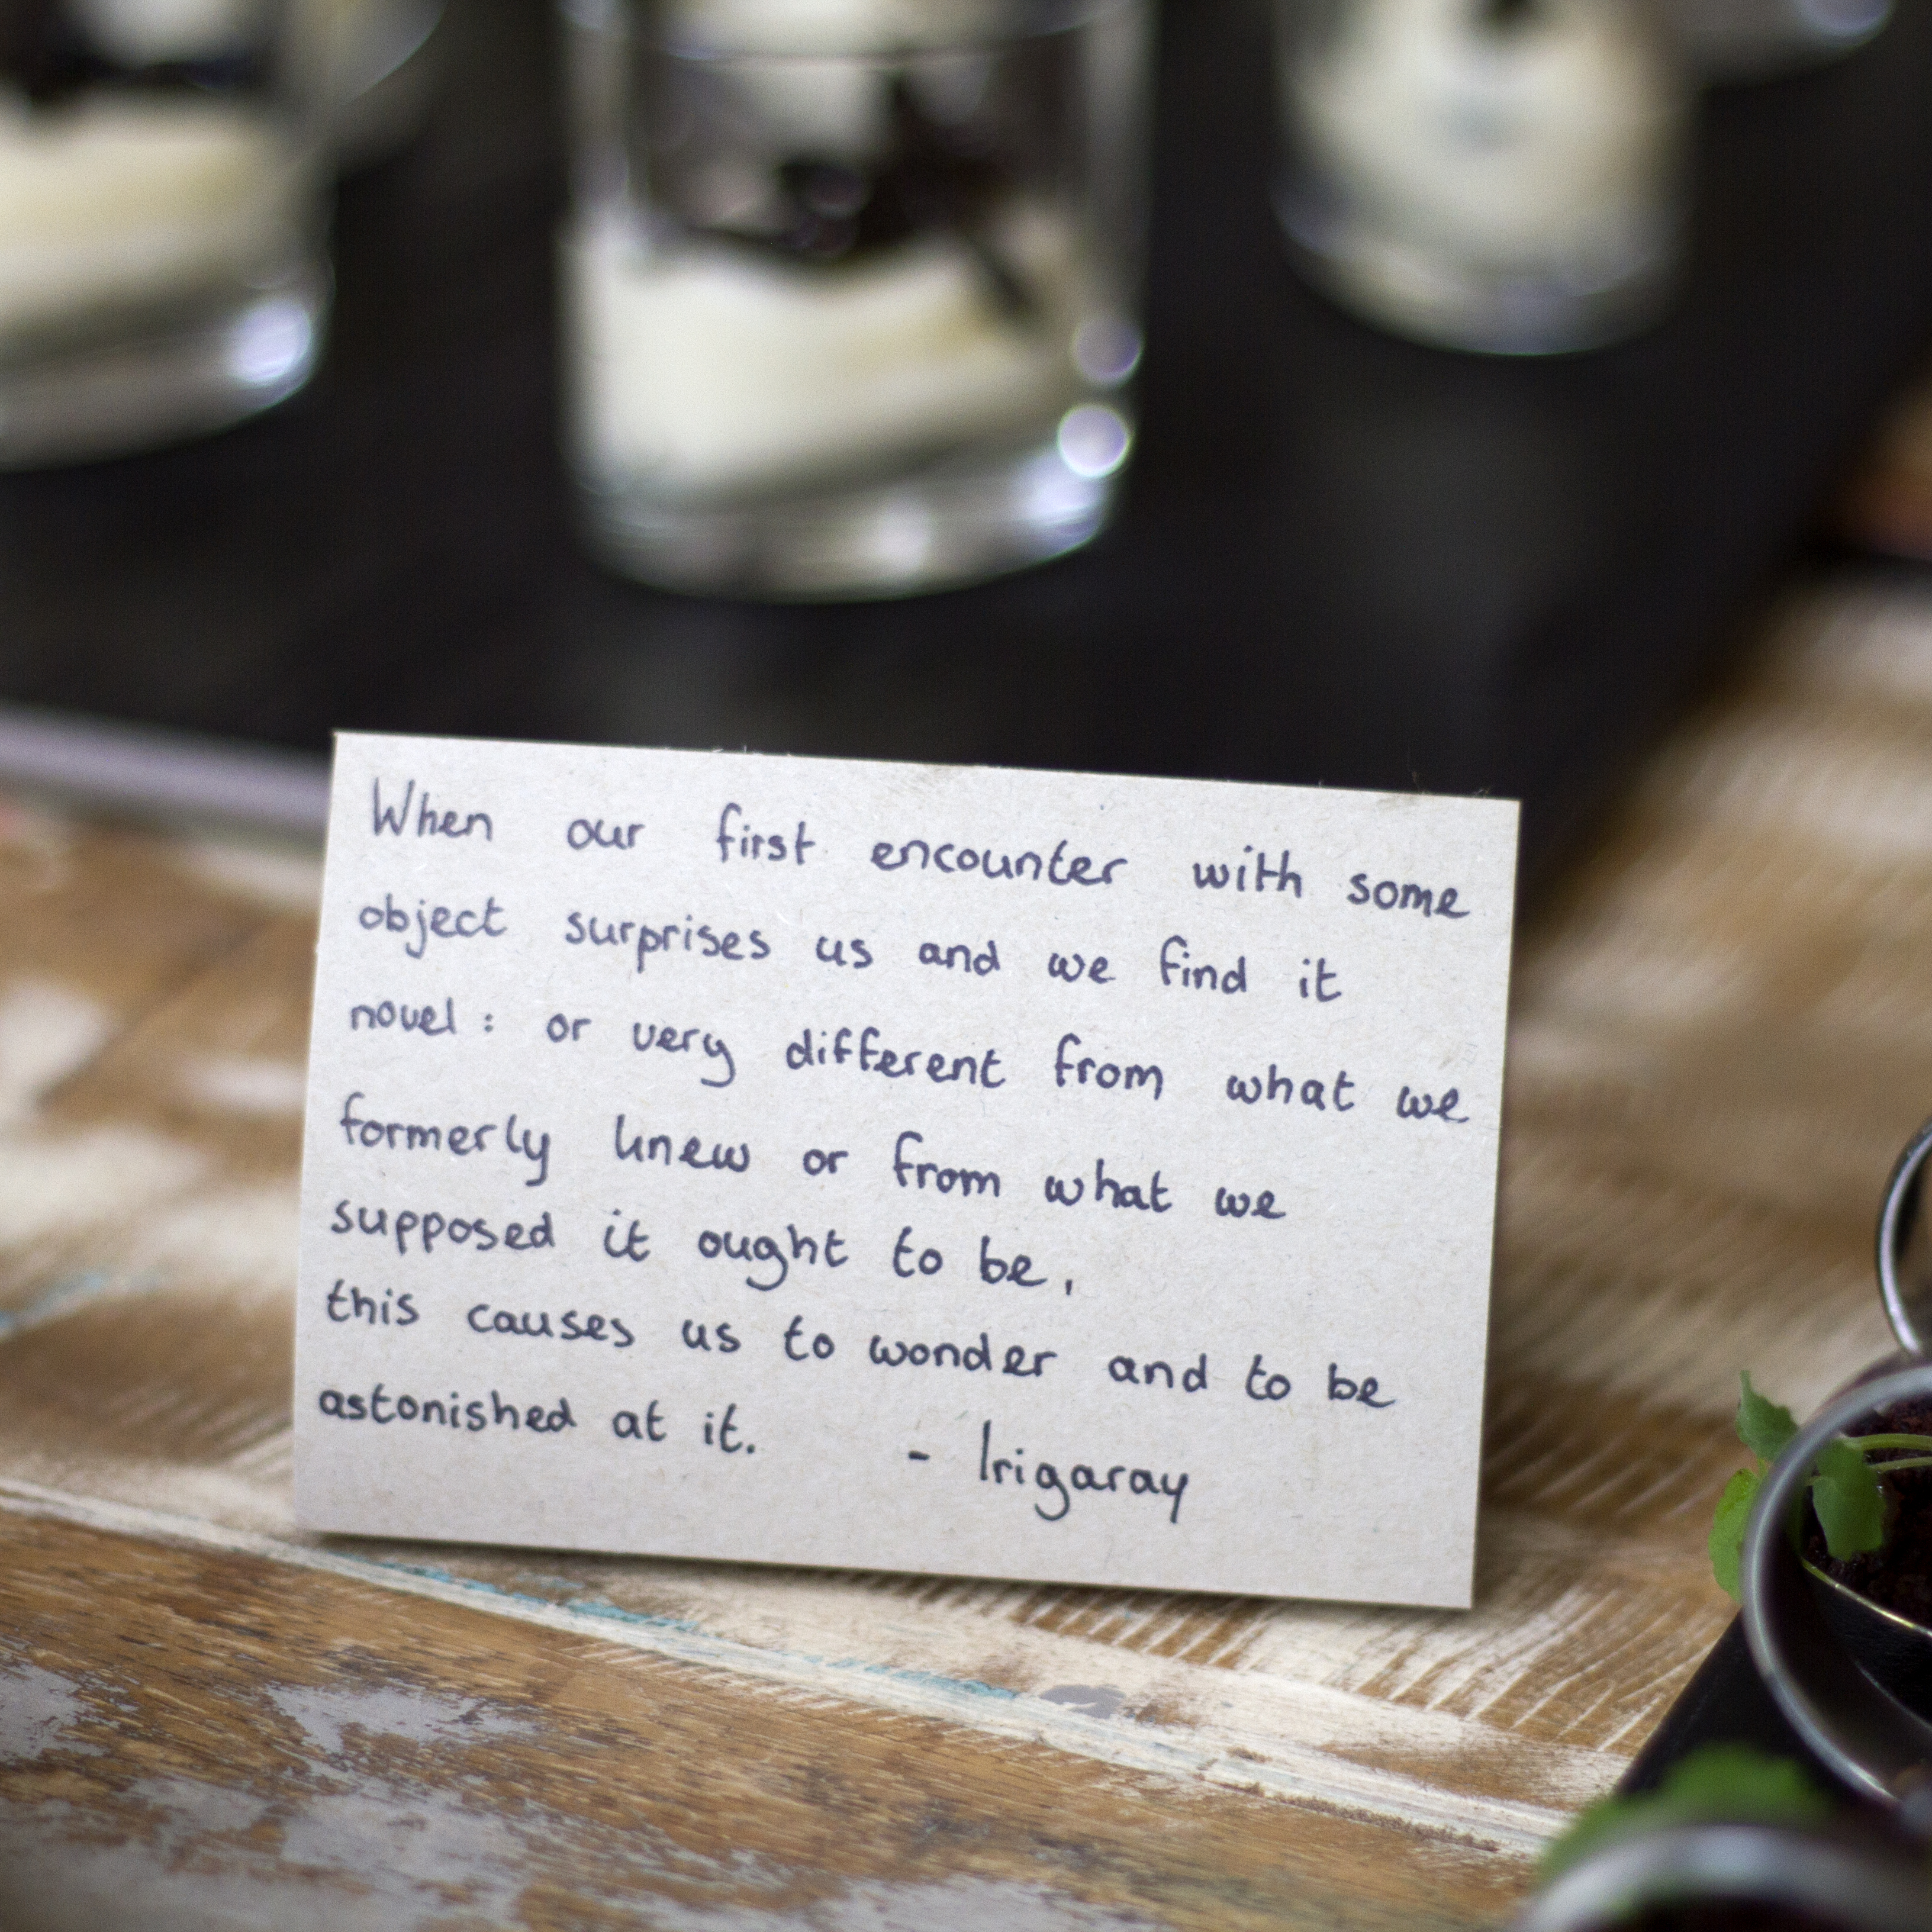 When our first encounter with some
object surprises us and we find it
novel : or very different from what we
formerly knew or from what we
supposed it ought to be,
this causes us to wonder and to be
astonished at it. - Irigaray